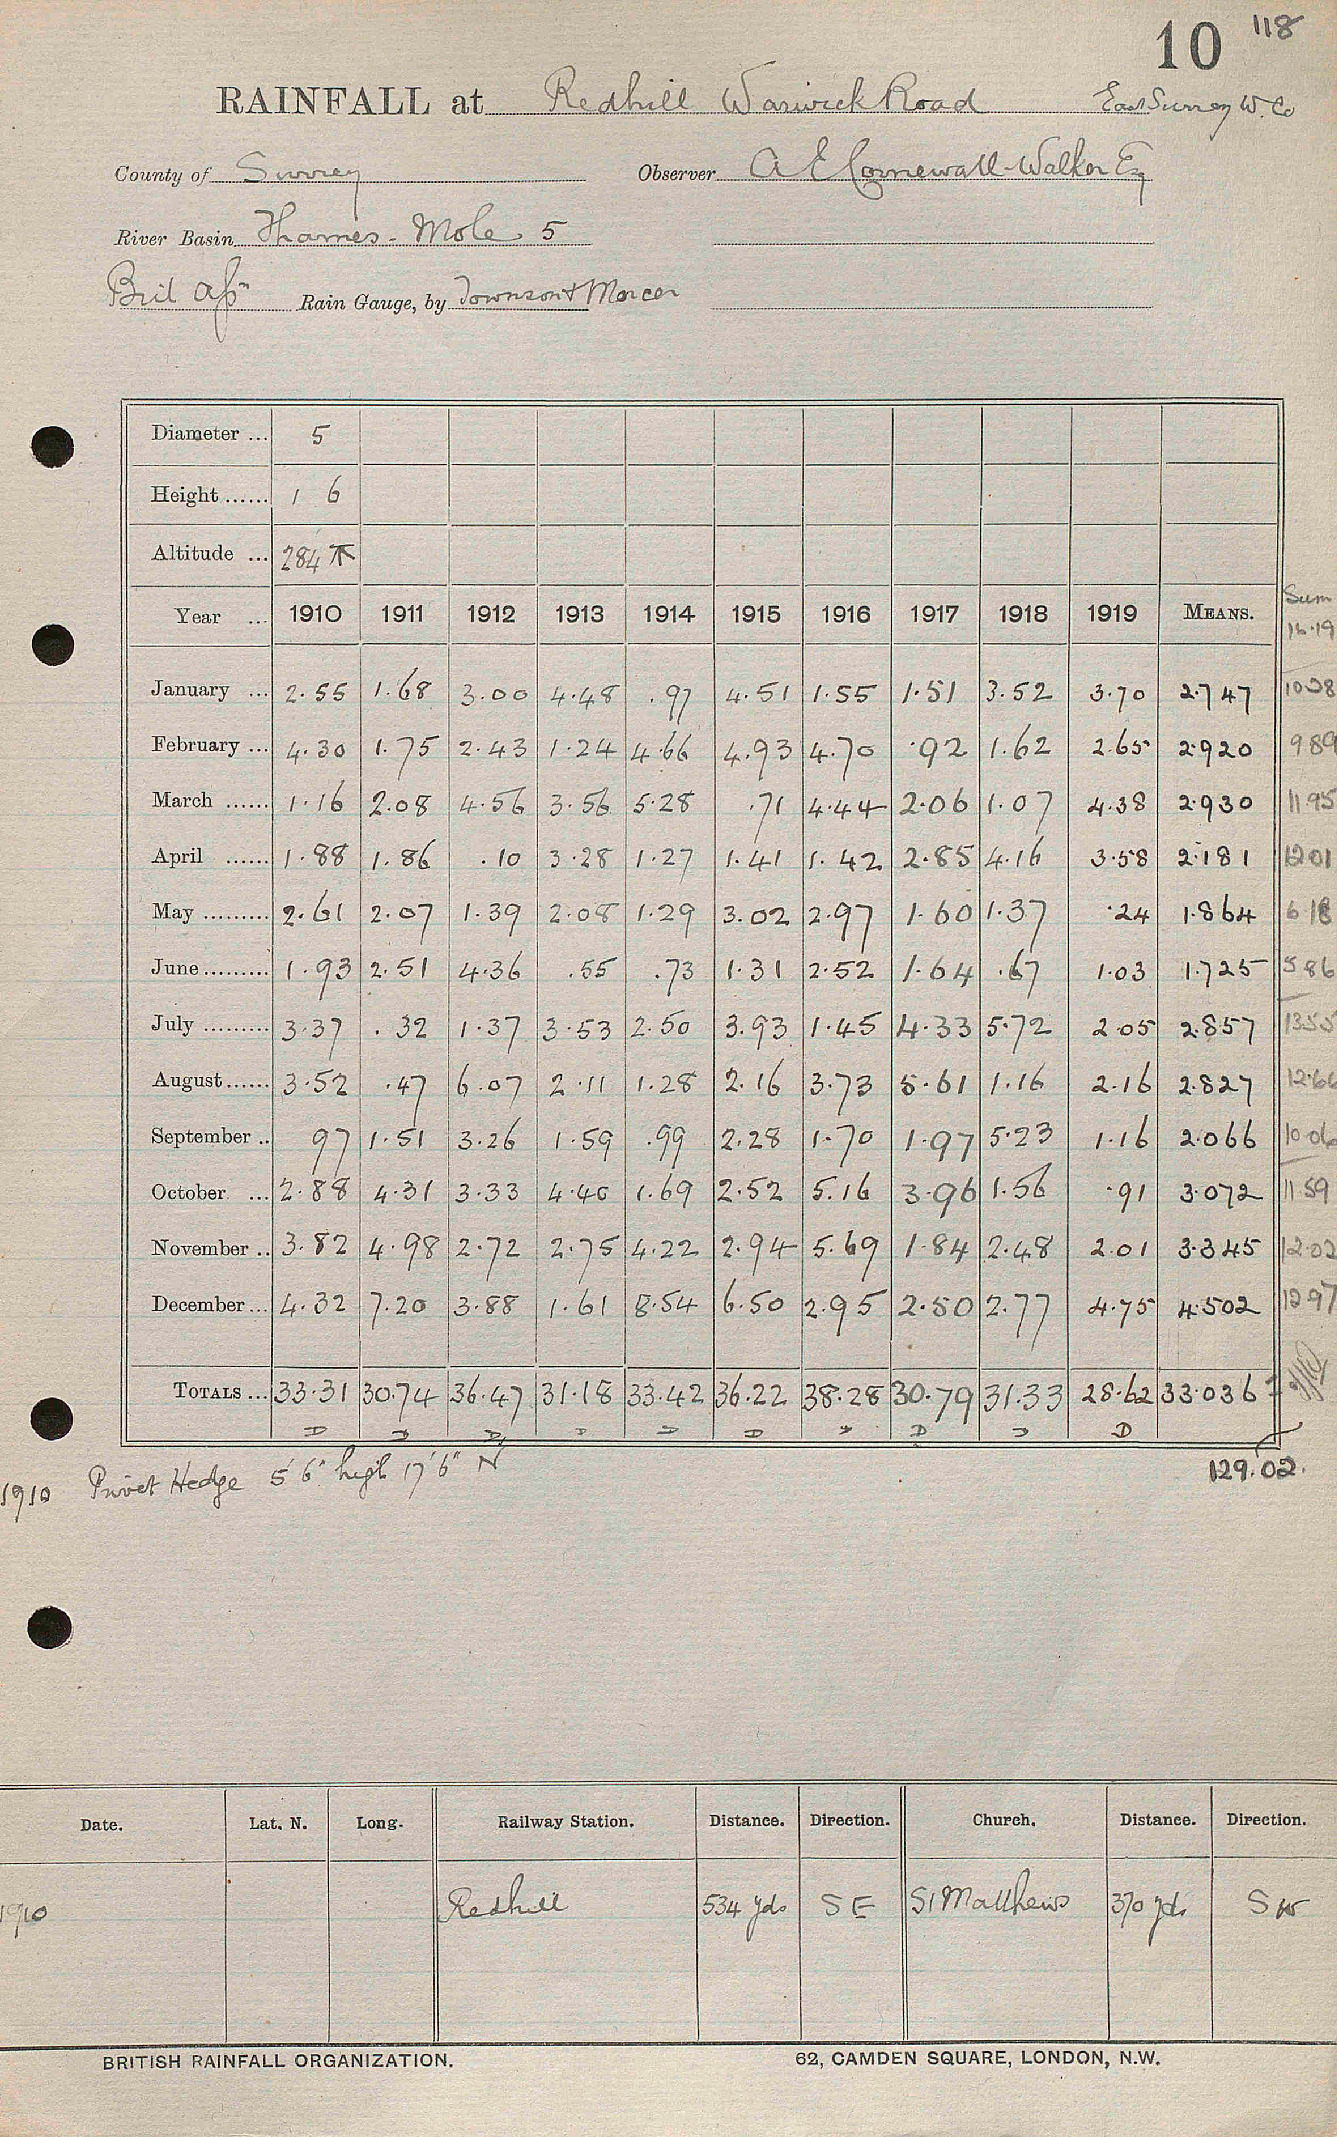 10 118
RAINFALL at Redhill Warwick Road East Surrey W. Co
County of Surrey Observer A E Cornewall-Walker Esq
River Basin Thames - Mole 5
Rain Gauge, by Townson & Mercer
Diameter ... 5
Height ...... 1 6
Altitude ... 284
Year ... 1910 1911 1912 1913 1914 1915 1916 1917 1918 1919 MEANS. Sum 16-19
January ... 2.55 1.68 3.00 4.48 .97 4.51 1.55 1.51 3.52 3.70 2.747 1028
February ... 4.30 1.75 2.43 1.24 4.66 4.93 4.70 .92 1.62 2.65 2.920 989
March ...... 1.16 2.08 4.56 3.56 5.28 .71 4.44 2.06 1.07 4.38 2.930 1195
April ...... 1.88 1.86 .10 3.28 1.27 1.41 1.42 2.85 4.16 3.58 2.181 1201
May ......... 2.61 2.07 1.39 2.08 1.29 3.02 2.97 1.60 1.37 .24 1.864 6 18
June ......... 1.93 2.51 4.36 .55 .73 1.31 2.52 1.64 .67 1.03 1.725 586
July ......... 3.37 .32 1.37 3.53 2.50 3.93 1.45 4.33 5.72 2.05 2.857 1355
August ...... 3.52 .47 6.07 2.11 1.28 2.16 3.73 5.61 1.16 2.16 2.827 12.66
September .. 97 1.51 3.26 1.59 .99 2.28 1.70 1.97 5.23 1.16 2.066 10.06
October ... 2.88 4.31 3.33 4.40 1.69 2.52 5.16 3.96 1.56 .91 3.072 11 59
November .. 3.82 4.98 2.72 2.75 4.22 2.94 5.69 1.84 2.48 2.01 3.345 12.02
December ... 4.32 7.20 3.88 1.61 8.54 6.50 2.95 2.50 2.77 4.75 4.502 12 97
TOTALS ... 33.31 30.74 36.47 31.18 33.42 36.22 38.28 30.79 31.33 28.62 33.036
D D D D D D D D D D
1910 Privet Hedge 5' 6" high 17' 6" N 129.02.
Date. Lat. N. Long. Railway Station. Distance. Direction. Church. Distance. Direction.
1910 Redhill 534 yds SE St Matthews 370 yds SW
BRITISH RAINFALL ORGANIZATION. 62, CAMDEN SQUARE, LONDON, N.W.